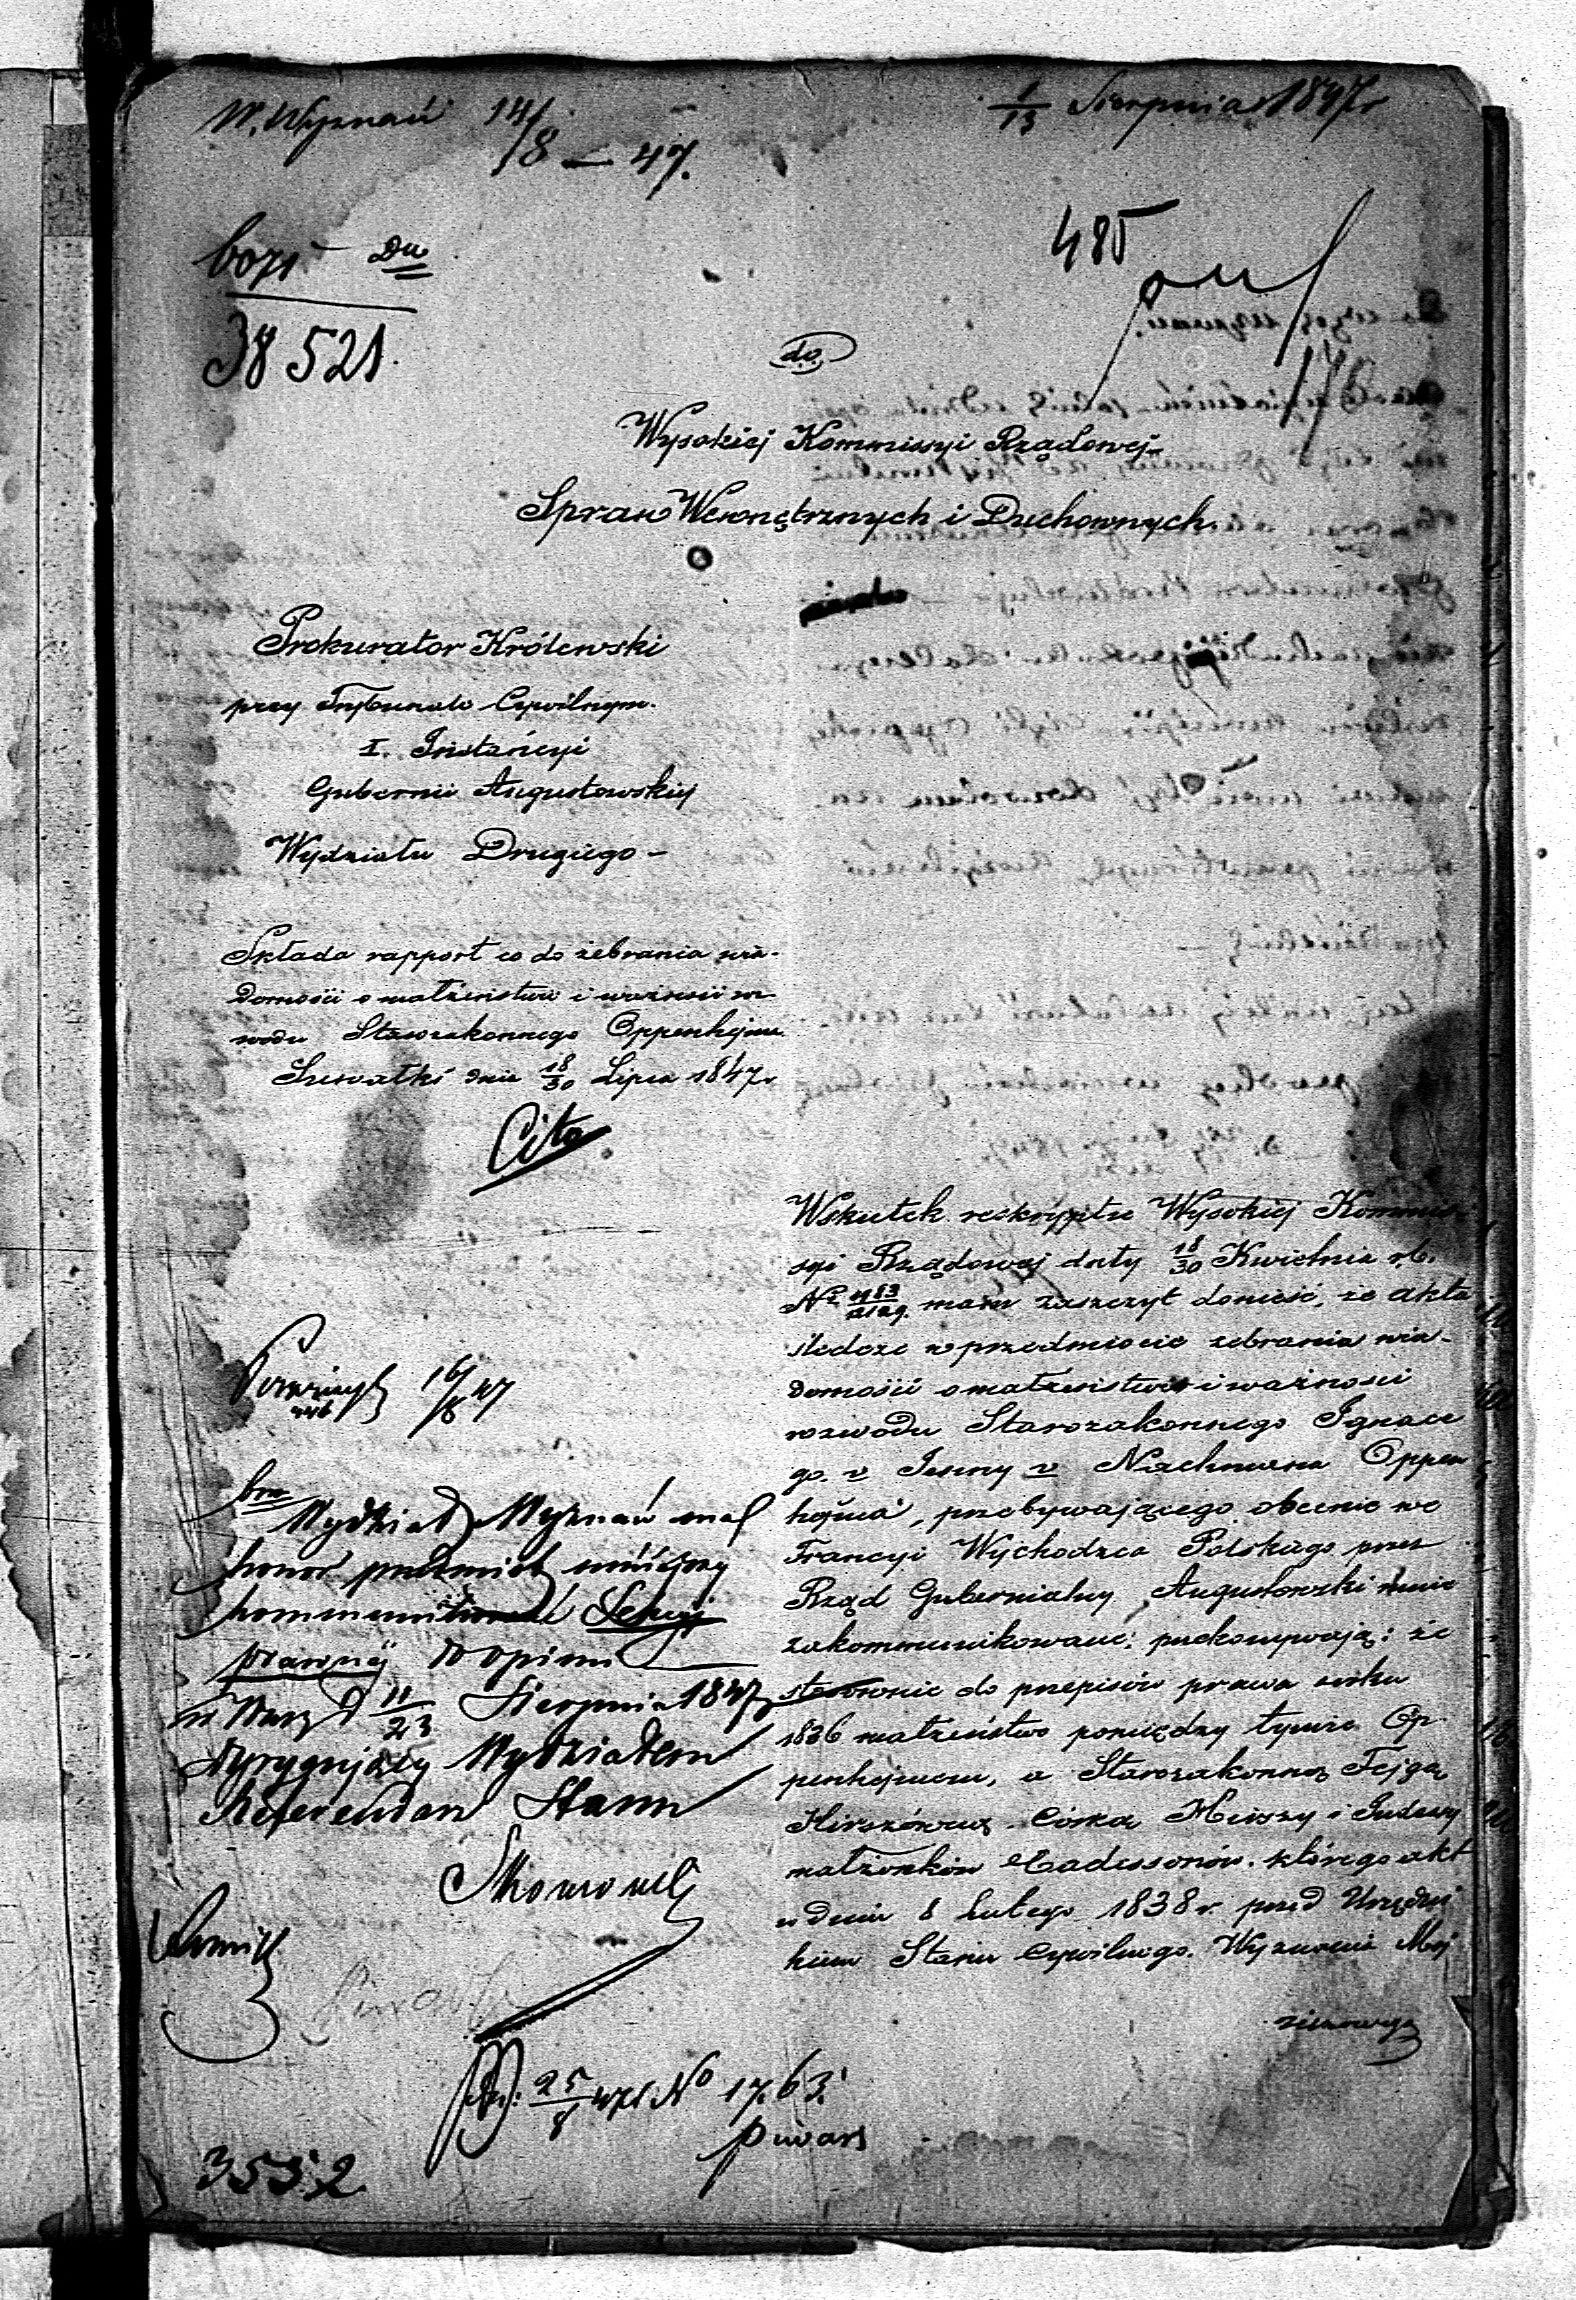 W. Wyznań 14/8 – 47.
1/13 Sierpnia 1847r
485
38521.
do
Wysokiej Kommissyi Rządowej
Spraw Wewnętrznych i Duchownych.
Prokurator Królewski
przy Trybunale Cywilnym
I. Instancyi
Gubernii Augustowskiej
Wydziału Drugiego –
Składa rapport co do zebrania wia-
domości o małżeństwie i ważności roz-
wodu Starozakonnego Oppenhejma
Suwałki dnia 18/30 Lipca 1847r
Cito
Wskutek reskryptu Wysokiej Kommis-
syi Rządowej daty 18/30 Kwietnia r.b.
No mam zaszczyt donieść, że akta
śledcze w przedmiocie zebrania wia-
domości o małżeństwie i ważności
rozwodu Starozakonnego Ignace
go v Nachmana Oppen
hejma, przebywającego obecnie we
Francyi Wychodźca Polskiego przez
Rząd Gubernialny Augustowski mnie
zakommunikowane; przekonywają: że
stosownie do przepisów prawa roku
1836 małżeństwo pomiędzy tymże Op-
penhejmem, a Starozakonną Fejgą
Hirszówną córką i
małżonków którego akt
w dniu 8 Lutego 1838 r. przed Urzędni
kiem Stanu Cywilnego Wyznania Moj
żeszowego
16/8 47
Wydział Wyznań ma
honor przedmiot niniejszy
Sekcyi
prawnej do opinii
w Warsz d 11/23 Sierpnia 1847r
Dyrygujący Wydziałem
Referendarz Stanu
25/8 47r No 1763
3552